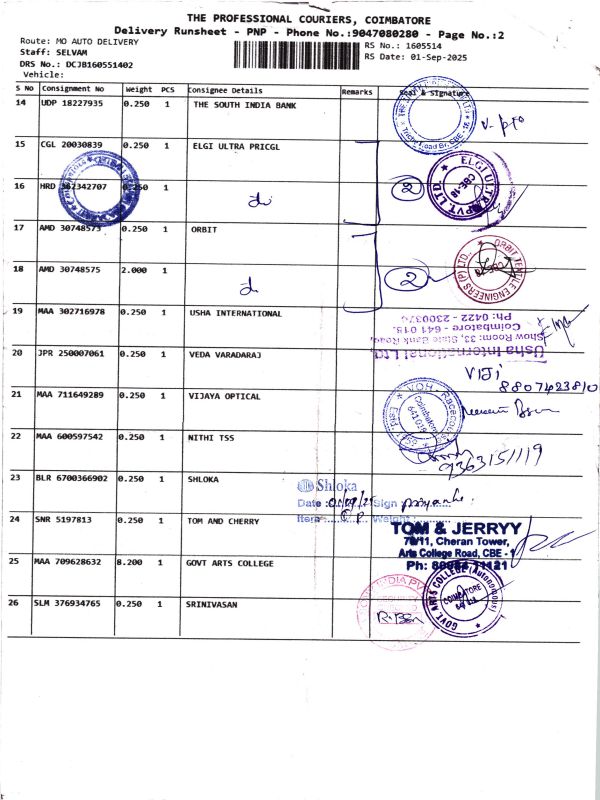 THE PROFESSIONAL COURIERS, COIMBATORE
Delivery Runsheet - PNP - Phone No.:9047080280 - Page No.:2
Route: MO AUTO DELIVERY
RS No.: 1605514
Staff: SELVAM
RS Date: 01-Sep-2025
DRS No.: DCJB160551402
Vehicle:
S No Consignment No Weight PCS Consignee Details Remarks Seal & Signature
14 UDP 18227935 0.250 1 THE SOUTH INDIA BANK
15 CGL 20030839 0.250 1 ELGI ULTRA PRICGL
ELGI ULTRA PVT. LTD. CBE-18
16 HRD 362342707 0.250 1 2
17 AMD 30748573 0.250 1 ORBIT
ORBIT TEXTILE ENGINEERS (P) LTD.
18 AMD 30748575 2.000 1 2
19 MAA 302716978 0.250 1 USHA INTERNATIONAL
Usha International Ltd.
Show Room: 33, State Bank Road,
Coimbatore - 641 018.
Ph: 0422 - 2300376
20 JPR 250007061 0.250 1 VEDA VARADARAJ
VIJI
8807423810
21 MAA 711649289 0.250 1 VIJAYA OPTICAL
Coimbatore 641018
22 MAA 600597542 0.250 1 NITHI TSS
9363151119
23 BLR 6700366902 0.250 1 SHLOKA
Shloka
Date :01/09/25 Sign : Priyanka
Item: C.P Weight
24 SNR 5197813 0.250 1 TOM AND CHERRY
TOM & JERRYY
Cheran Tower,
Arts College Road, CBE - 1
25 MAA 709628632 8.200 1 GOVT ARTS COLLEGE
GOVT. ARTS COLLEGE (Autonomous) COIMBATORE
26 SLM 376934765 0.250 1 SRINIVASAN